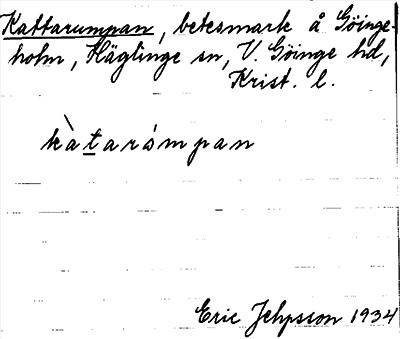 Kattarumpan, betesmark å Göinge-
holm, Häglinge sn, V. Göinge hd,
Krist. l.
kàtarómpan
Eric Jepsson 1934